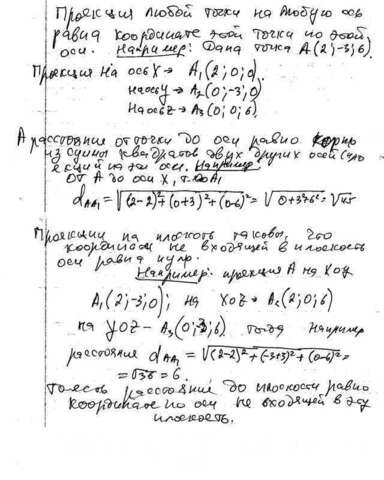 Проекция любой точки на любую ось
равна координате этой точки по этой
оси. Например: Дана точка A(2;-3;6).
Проекция на ось X → A₁(2;0;0).
на ось y → A₂(0;-3;0)
На ось z → A₃(0;0;6).
А расстояние от точки до оси равно корню
из суммы квадратов двух других осей
на эти оси. Например:
От A до оси X, т. до A₁
d_AA₁ = √(2-2)²+(0+3)²+(0-6)² = √0+3²+6² = √45
Проекции на плоскость таковы, что
координаты не входящей в плоскость
оси равна нулю.
Например: проекция A на XOY
A₁(2;-3;0); на XOZ → A₂(2;0;6)
на YOZ - A₃(0;-3;6) тогда например
расстояние d_AA₁ = √(2-2)²+(-3+3)²+(0-6)² =
= √36 = 6.
То есть расстояние до плоскости равно
координате по оси не входящей в эту
плоскость.